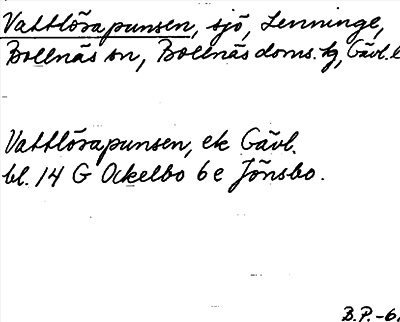 Vattlösapunsen, sjö, Lenninge,
Bollnäs sn, Bollnäs doms. hg, Gävl. l
Vattlösapunsen, ek Gävl.
bl. 14 G Ockelbo 6e Jönsbo.
B.P. -6